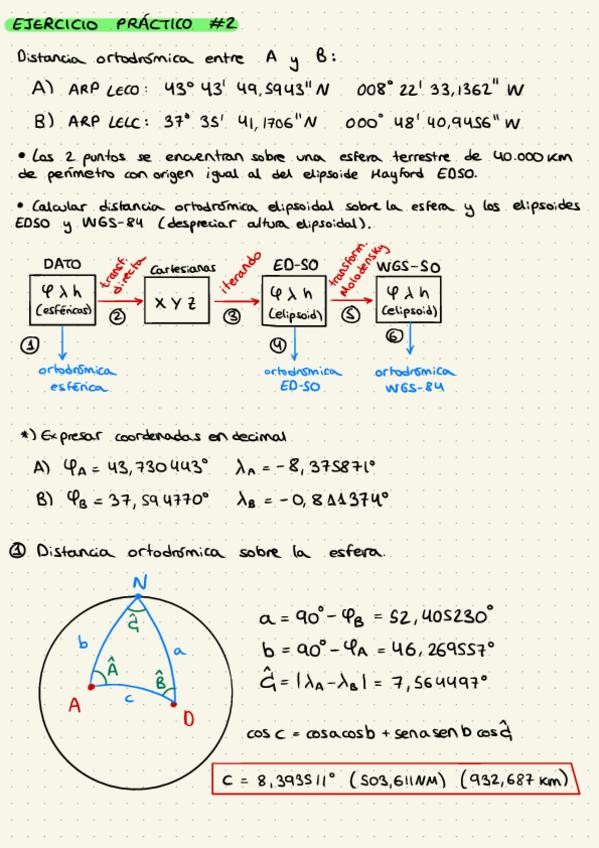 EJERCICIO PRÁCTICO #2
Distancia ortodrómica entre A y B:
A) ARP LECO: 43° 43' 49,5943" N 008° 22' 33,1362" W
B) ARP LELC: 37° 35' 41,1706" N 000° 48' 40,9456" W
• Los 2 puntos se encuentran sobre una esfera terrestre de 40.000 km
de perímetro con origen igual al del elipsoide Hayford ED50.
• Calcular distancia ortodrómica elipsoidal sobre la esfera y los elipsoides
ED50 y WGS-84 (despreciar altura elipsoidal).
DATO
transf. directa
Cartesianas
iterando
ED-50
transform. Molodensky
WGS-50
φ λ h
(esféricas)
②
X Y Z
③
φ λ h
(elipsoid)
⑤
φ λ h
(elipsoid)
①
④
⑥
ortodrómica
esférica
ortodrómica
ED-50
ortodrómica
WGS-84
*) Expresar coordenadas en decimal
A) φA = 43,730443° λA = -8,375871°
B) φB = 37,594770° λB = -0,811374°
① Distancia ortodrómica sobre la esfera.
N
Ĝ
b
a
Â
B̂
c
A
D
a = 90° - φB = 52,405230°
b = 90° - φA = 46,269557°
Ĝ = |λA - λB| = 7,564497°
cos c = cos a cos b + sen a sen b cos Ĝ
c = 8,393511° (503,611NM) (932,687 km)